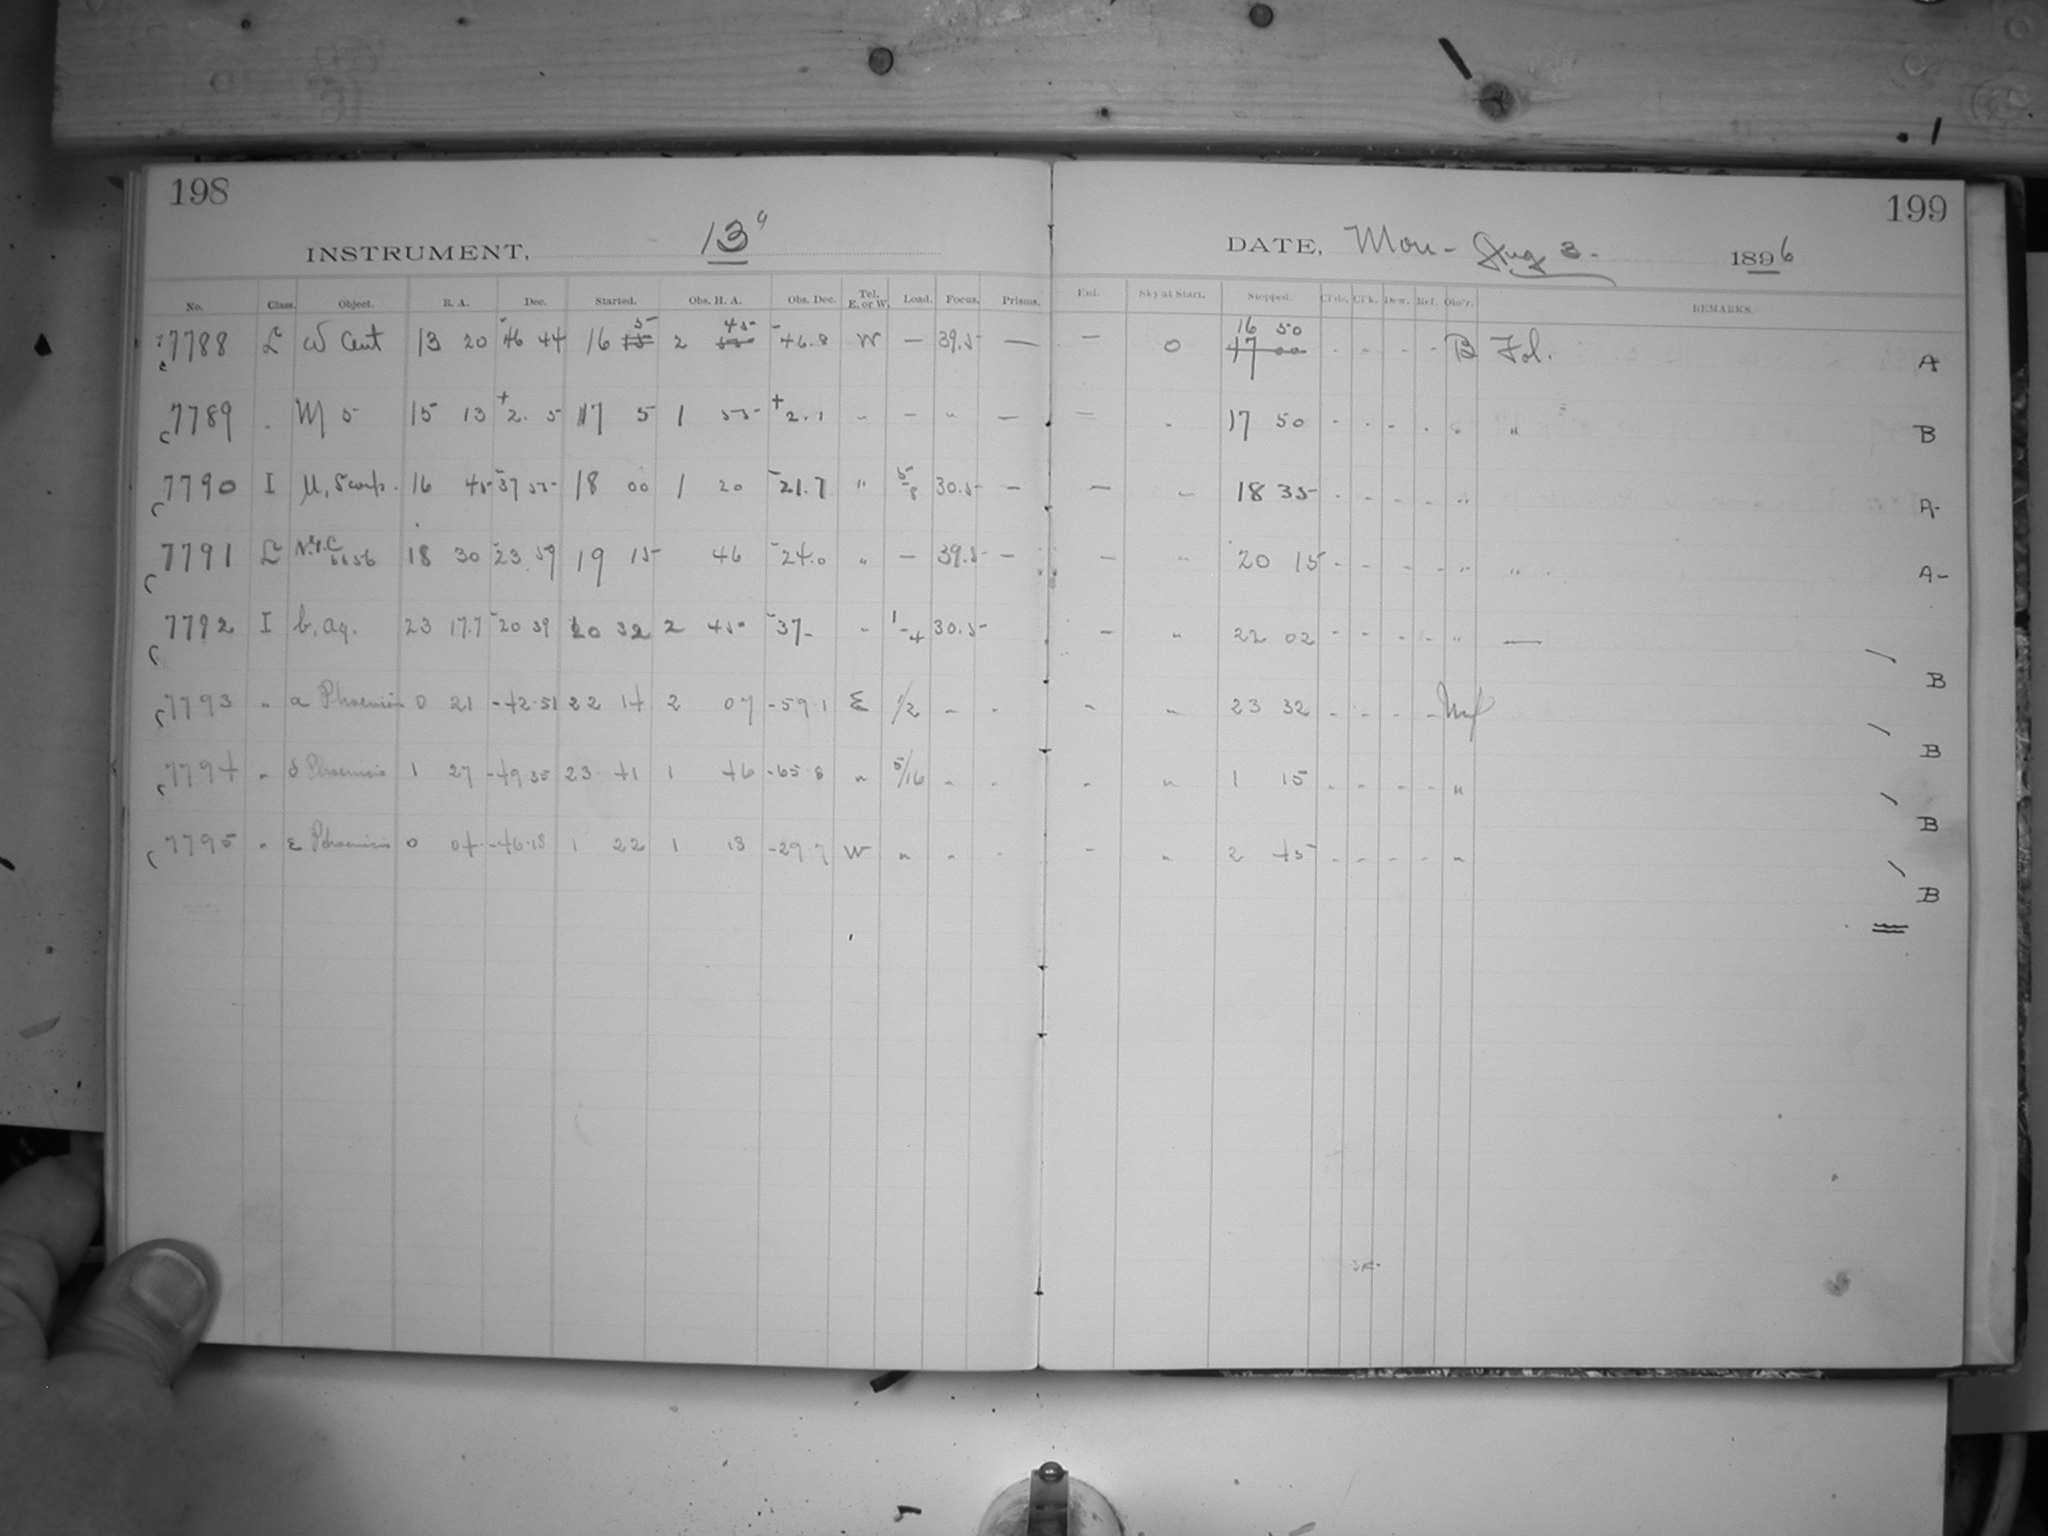 198
INSTRUMENT, 13"
No. Class. Object. R. A. Dec. Started. Obs. H. A. Obs. Dec. Tel. E. or W. Load. Focus. Prisms.
7788 L ω Cent 13 20 -46 44 16 5 2 45 -46.8 W — 39.5 —
7789 . M 5 15 13 +2. 5 17 5 1 55 +2.1 " — " —
7790 I μ, Scorp. 16 45 -37 55 18 00 1 20 -21.7 " 5/8 30.5 —
7791 L N.G.C 6656 18 30 -23.59 19 15 46 -24.0 " — 39.5 —
7792 I b, aq. 23 17.7 -20 39 20 32 2 45 -37- " 1/4 30.5
7793 " α Phoenicis 0 21 -42.51 22 14 2 07 -59.1 E 1/2 " "
7794 " δ Phoenicis 1 27 -49.35 23 41 1 46 -65.8 " 5/16 " "
7795 " ε Phoenicis 0 04 -46.18 1 22 1 13 -29.7 W " " "
199
DATE, Mon- Aug 3. 1896
Enl. Sky at Start. Stopped. Cl'ds. Cl'k. Dew. Ref. Obs'r. REMARKS.
— 0 16 50 - - - - B Fol. A
17 00
— " 17 50 - - - - " " B
— " 18 35 - - - - " A-
— " 20 15 - - - - " " A-
— " 22 02 - - - - " —
B
- " 23 32 - - - -
B
- " 1 15 - - - - "
B
- " 2 45 - - - - "
B